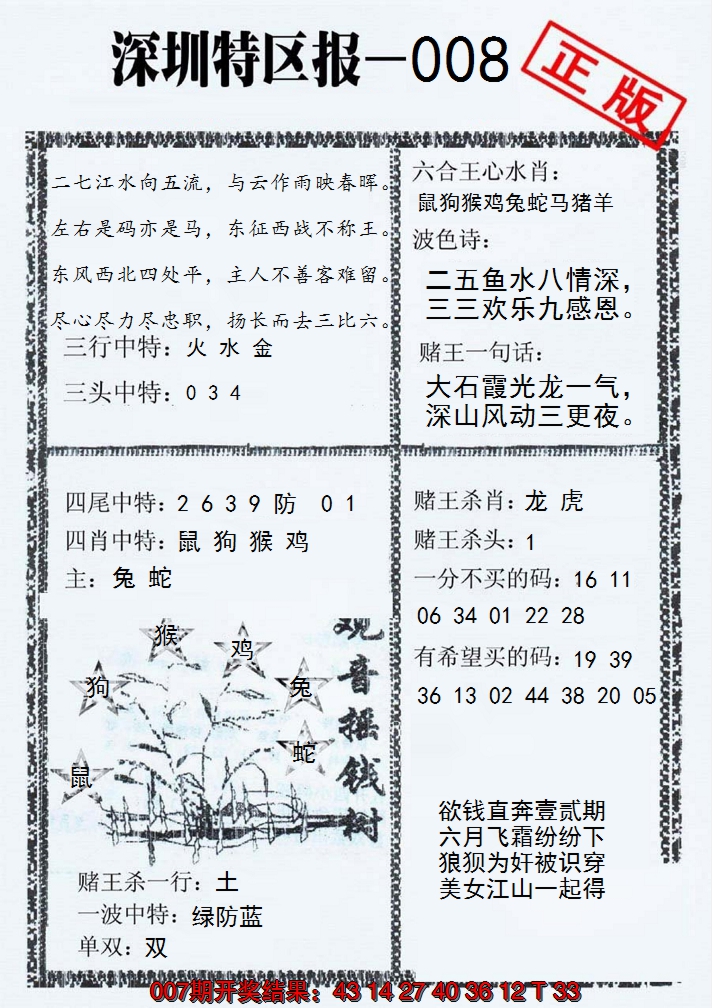 深圳特区报—008
正版
二七江水向五流，与云作雨映春晖。
左右是码亦是马，东征西战不称王。
东风西北四处平，主人不善客难留。
尽心尽力尽忠职，扬长而去三比六。
三行中特：火 水 金
三头中特：0 3 4
六合王心水肖：
鼠狗猴鸡兔蛇马猪羊
波色诗：
二五鱼水八情深，
三三欢乐九感恩。
赌王一句话：
大石霞光龙一气，
深山风动三更夜。
四尾中特：2 6 3 9 防 0 1
四肖中特：鼠 狗 猴 鸡
主：兔 蛇
猴
鸡
狗
兔
蛇
鼠
观音摇钱树
赌王杀一行：土
一波中特：绿防蓝
单双：双
赌王杀肖：龙 虎
赌王杀头：1
一分不买的码：16 11
06 34 01 22 28
有希望买的码：19 39
36 13 02 44 38 20 05
欲钱直奔壹贰期
六月飞霜纷纷下
狼狈为奸被识穿
美女江山一起得
007期开奖结果：43 14 27 40 36 12 T 33